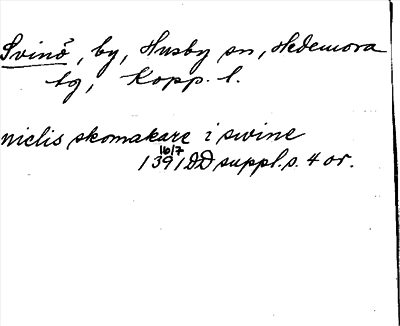 Svinö, by, Husby sn, Hedemora
tg, Kopp. l.
nielis skomakare i swine
16/7
1391 DD suppl. s. 4 or.